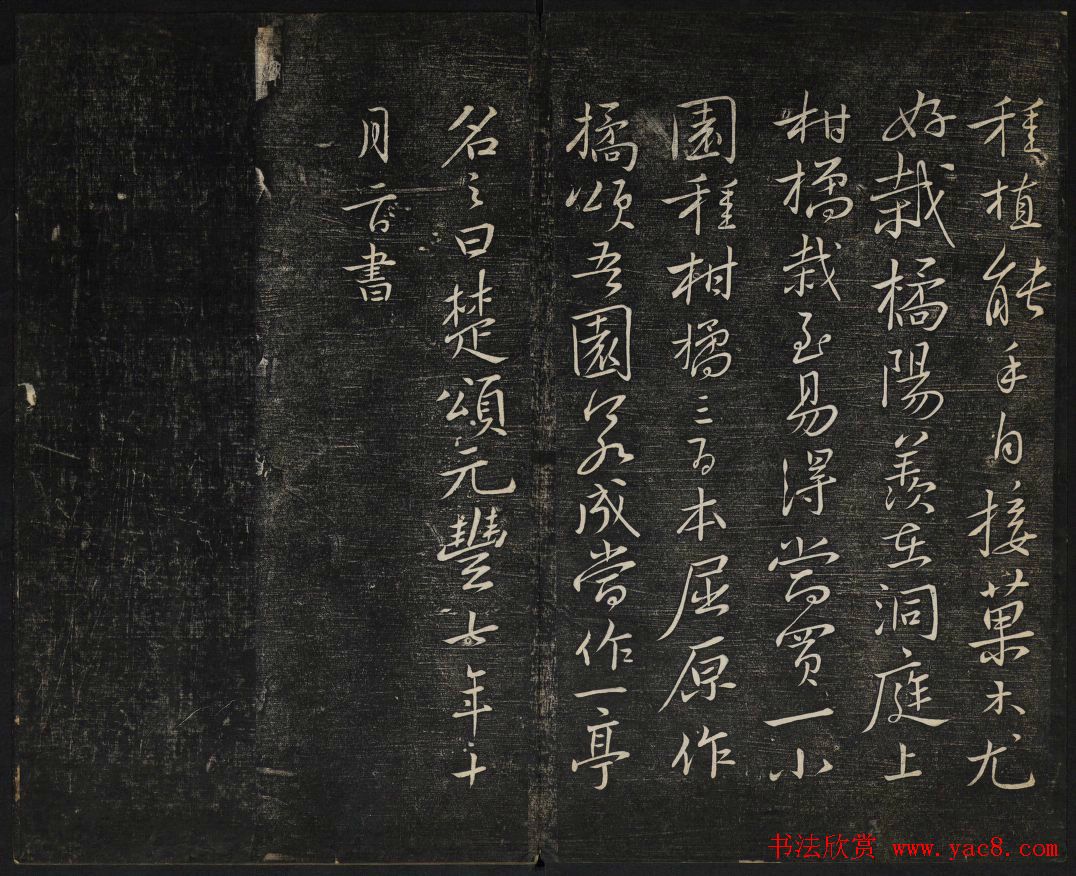 種植能手自接菓木尤
好栽橘陽羡在洞庭上
柑橘栽至易得當買一小
園種柑橘三百本屈原作
橘頌吾園若成當作一亭
名之曰楚頌元豐七年十
月 書
书法欣赏 www.yac8.com